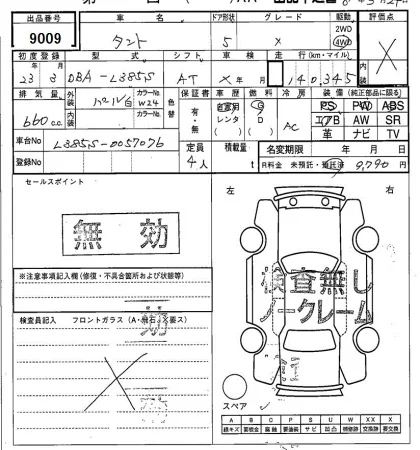 出品番号 車名 ドア形状 グレード 駆動 評価点
9009 タント 5 X 2WD 4WD X
初度登録 型式 シフト 車検 走行(km・マイル) 内装
23年3月 DBA-L385S AT X年 月 140,345
排気量 外装 パール白 カラーNo. W24 色替 保証書 車歴 燃料 冷房 装備(純正部品に限る)
660cc 内装 カラーNo. 有・無 自家用 レンタ ( ) G D ( ) AC PS PW ABS
エアB AW SR
革 ナビ TV
車台No L385S-0057076 定員 積載量 名変期限 年 月 日
登録No 4人 t R料金 未預託・預託済 9,790円
セールスポイント 左 右
無効
※注意事項記入欄(修復・不具合箇所および状態等)
検査無し
ノークレーム
検査員記入 フロントガラス(A・飛石・X要ス)
無効
スペア
A B C P S U W X XX
線キズ 要板金 腐触 要塗装 サビ 凹凸 補修跡 交換跡 要交換